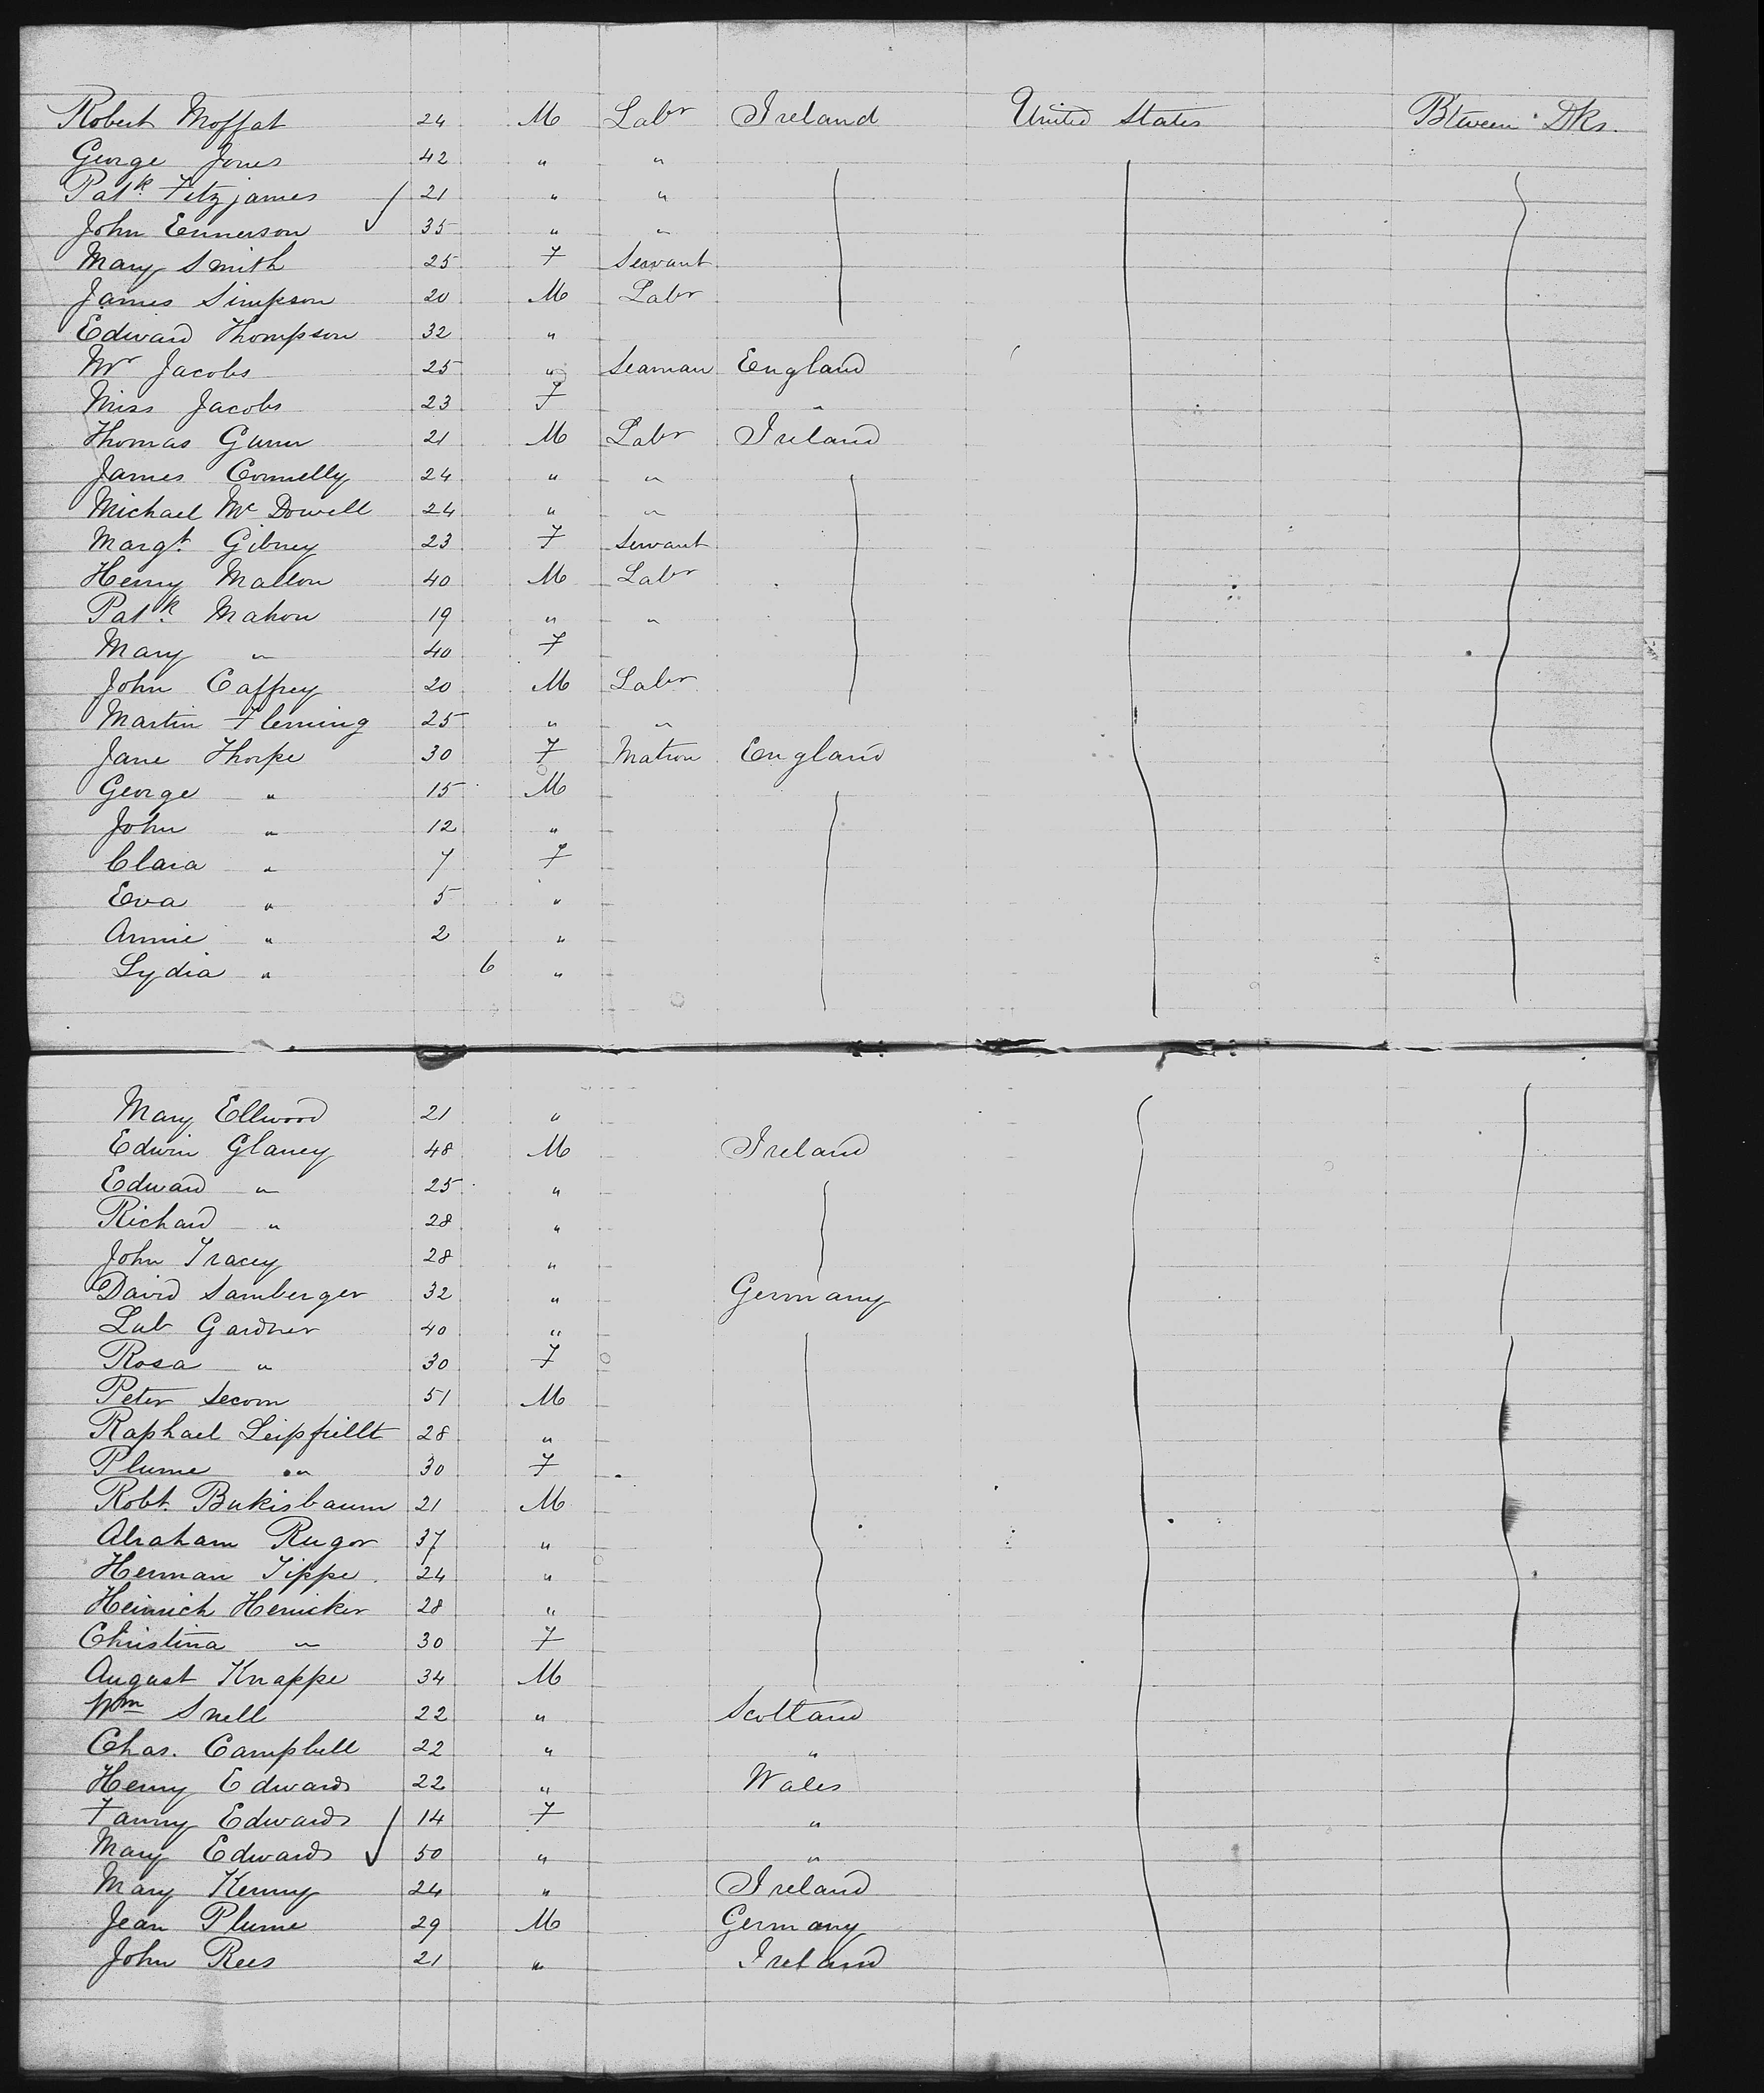 Robert Moffat 24 M Labr Ireland United States Btween Dks.
George Jones 42 " "
Patk. Fitzjames 21 " "
John Emmerson 35 " "
Mary Smith 25 F Servant
James Simpson 20 M Labr
Edward Thompson 32 "
Mr Jacobs 25 " Seaman England
Miss Jacobs 23 F "
Thomas Gunn 21 M Labr Ireland
James Connelly 24 " "
Michael Mc Dowell 24 " "
Margt. Gibney 23 F Servant
Henry Mallon 40 M Labr
Patk. Mahon 19 " "
Mary " 40 F
John Caffrey 20 M Labr
Martin Fleming 25 " "
Jane Thorpe 30 F Matron England
George " 15 M
John " 12 "
Clara " 7 F
Eva " 5 "
Annie " 2 "
Lydia " 6 "
Mary Ellwood 21 "
Edwin Glaney 48 M Ireland
Edward " 25 "
Richard " 28 "
John Tracey 28 "
David Samberger 32 " Germany
Lub Gardner 40 "
Rosa " 30 F
Peter Secorn 51 M
Raphael Leipfrillt 28 "
Plume " 30 F
Robt. Bukisbaum 21 M
Abraham Rugor 37 "
Herman Tippe 24 "
Heinrich Henicker 28 "
Christina " 30 F
August Knappe 34 M
Wm Snell 22 " Scotland
Chas. Campbell 22 " "
Henry Edwards 22 " Wales
Fanny Edwards 14 F "
Mary Edwards 50 " "
Mary Kenny 24 " Ireland
Jean Plume 29 M Germany
John Rees 21 " Ireland